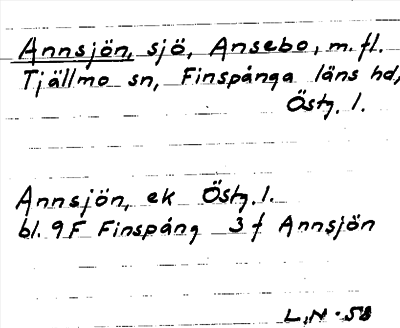 Annsjön, sjö, Ansebo, m.fl.
Tjällmo sn, Finspånga läns hd,
Östg. l.
Annsjön, ek Östg. l.
bl. 9F Finspång 3f Annsjön
L.N. 58